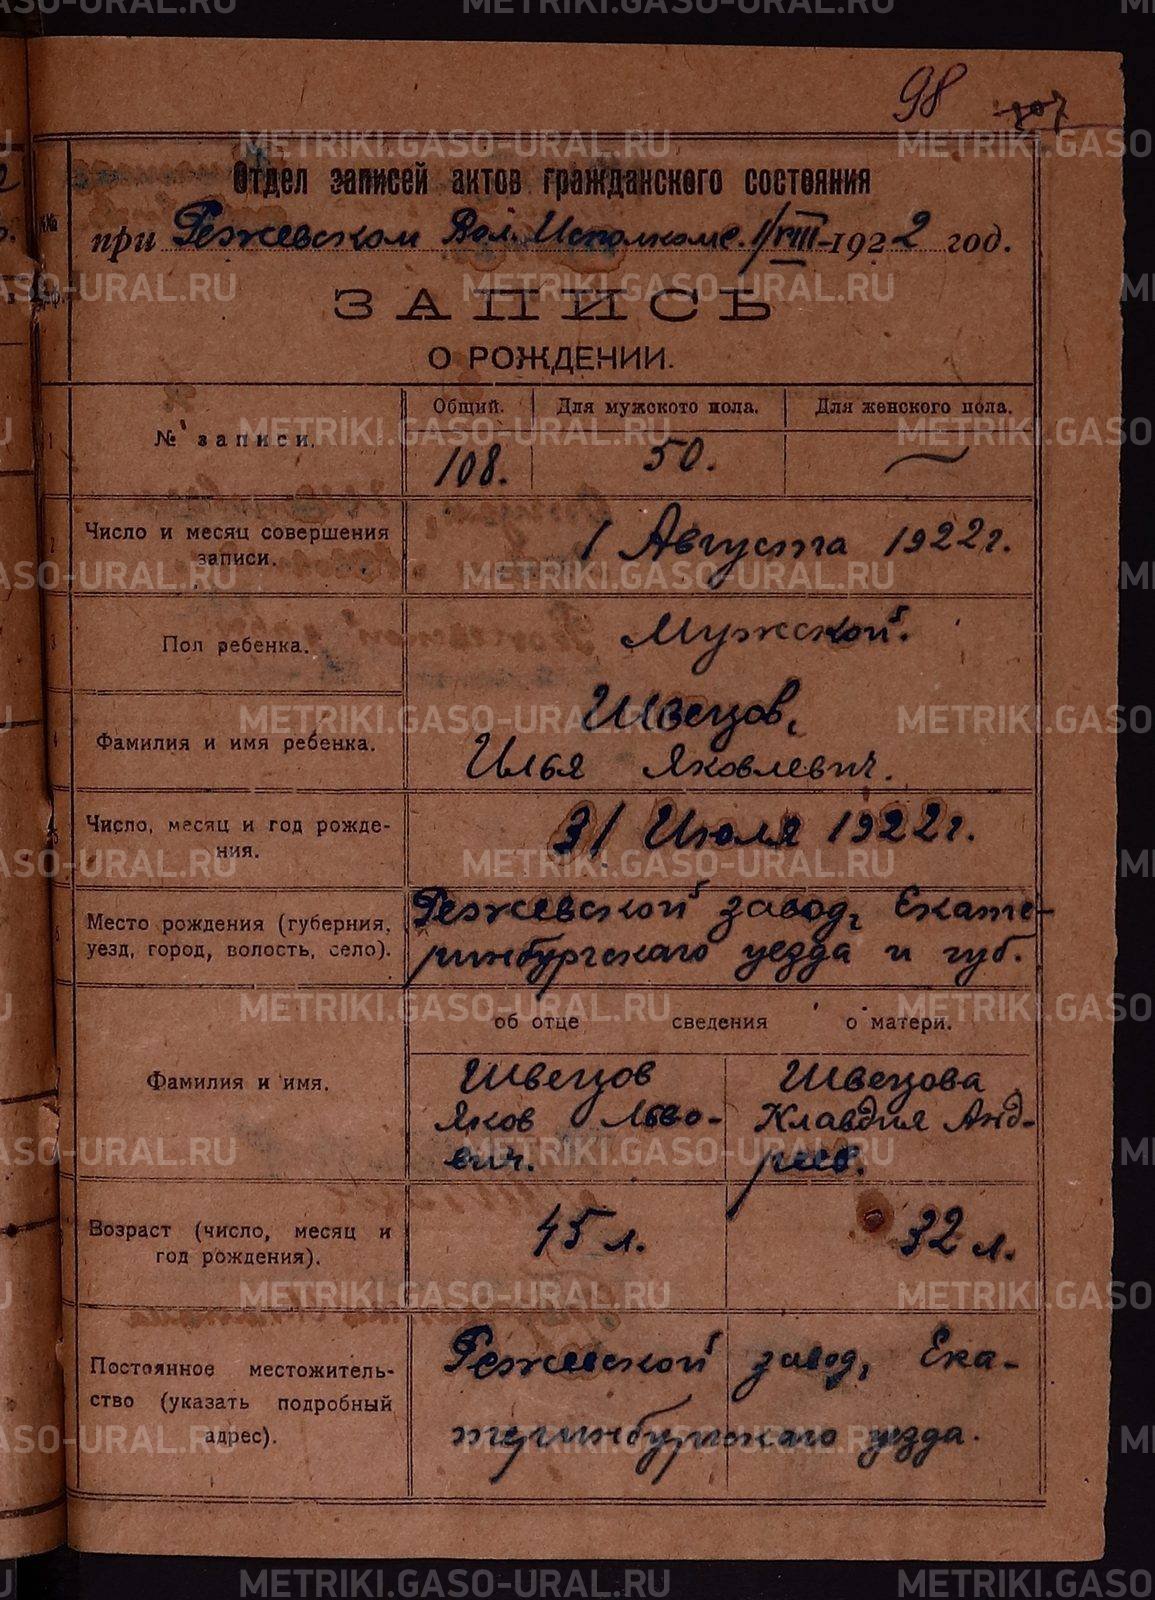 98 107
Отдел записей актов гражданского состояния
при Режевском Вол. Исполкоме. 1/VIII-1922 год.
ЗАПИСЬ
О РОЖДЕНИИ.
№ записи.
Общий. Для мужского пола. Для женского пола.
108. 50. —
Число и месяц совершения
записи.
1 Августа 1922 г.
Пол ребенка.
Мужской.
Фамилия и имя ребенка.
Швецов,
Илья Яковлевич.
Число, месяц и год рожде-
ния.
31 Июля 1922 г.
Место рождения (губерния,
уезд, город, волость, село).
Режевской завод, Екате-
ринбургского уезда и губ.
об отце сведения о матери.
Фамилия и имя.
Швецов
Яков Льво-
вич.
Швецова
Клавдия Анд-
реев.
Возраст (число, месяц и
год рождения).
45 л. 32 л.
Постоянное местожитель-
ство (указать подробный
адрес).
Режевской завод, Ека-
теринбургского уезда.
METRIKI.GASO-URAL.RU